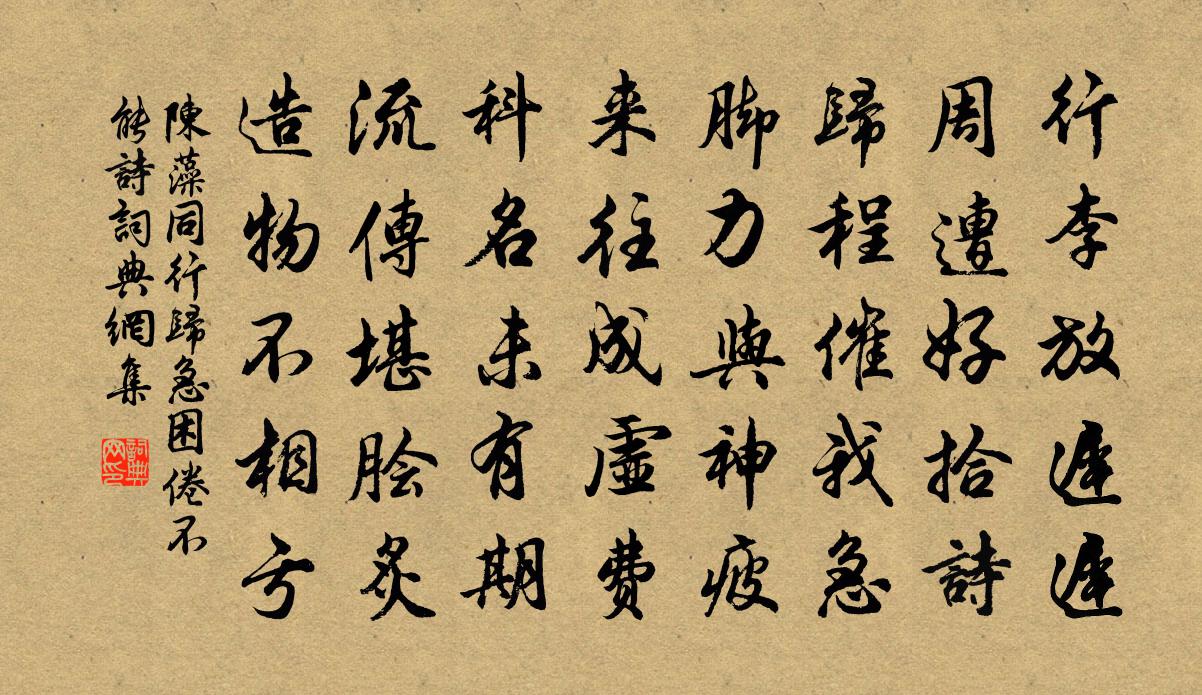 行李放遲遲
周遭好拾詩
歸程催我急
脚力與神疲
来往成虛費
科名未有期
流傳堪膾炙
造物不相亏
陳藻同行歸急困倦不
能詩詞典網集
詞典
网印